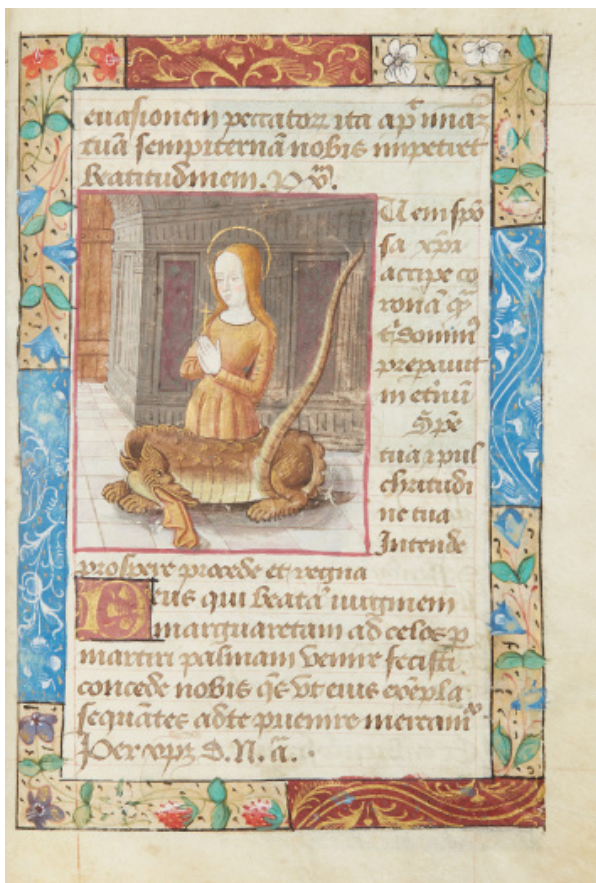 euasionem peccatoꝝ ita apᷤ unaꝫ
tuā sempiternā nobis impetret
beatitudinem. P v̄.
Ueni spō
sa xp̄i
accipe co
ronā qͣ
t' dominꝰ
preparauit
in et'nū
Spē
tua ⁊ pul
chritudi
ne tua
Intende
prospere procede et regna
Deus qui beatā uirginem
marguaretam ad celos ꝑ
martiri palmam venire fecisti.
concede nobis qs̄ vt eius exēpla
sequētes ad te puenire mereamꝰ
Per xp̄ꝫ d. n. a.